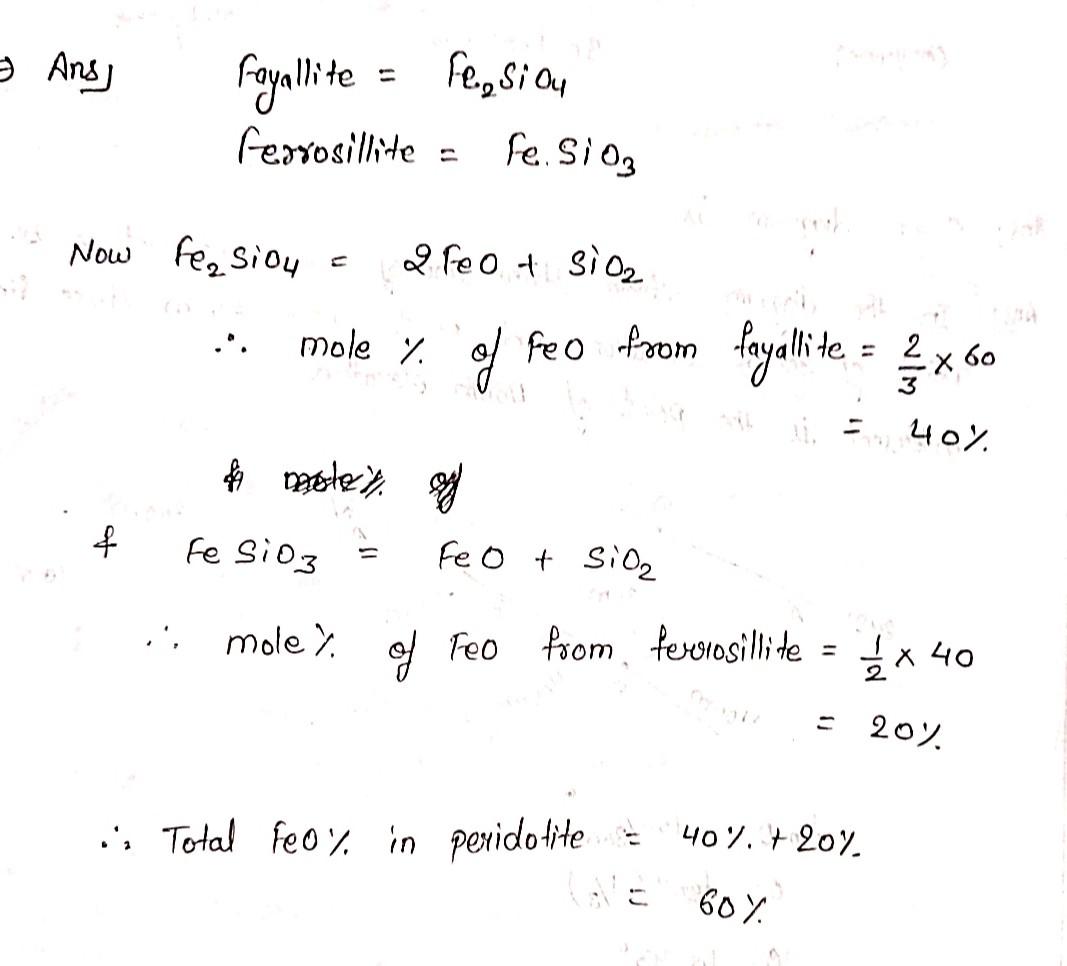 ⇒ Ans) fayallite = Fe₂SiO₄
ferrosillite = Fe.SiO₃
Now Fe₂SiO₄ = 2FeO + SiO₂
∴ mole % of FeO from fayallite = 2/3 x 60
= 40%
& FeSiO₃ = FeO + SiO₂
∴ mole % of FeO from ferrosillite = 1/2 x 40
= 20%
∴ Total FeO % in peridotite = 40% + 20%
= 60%